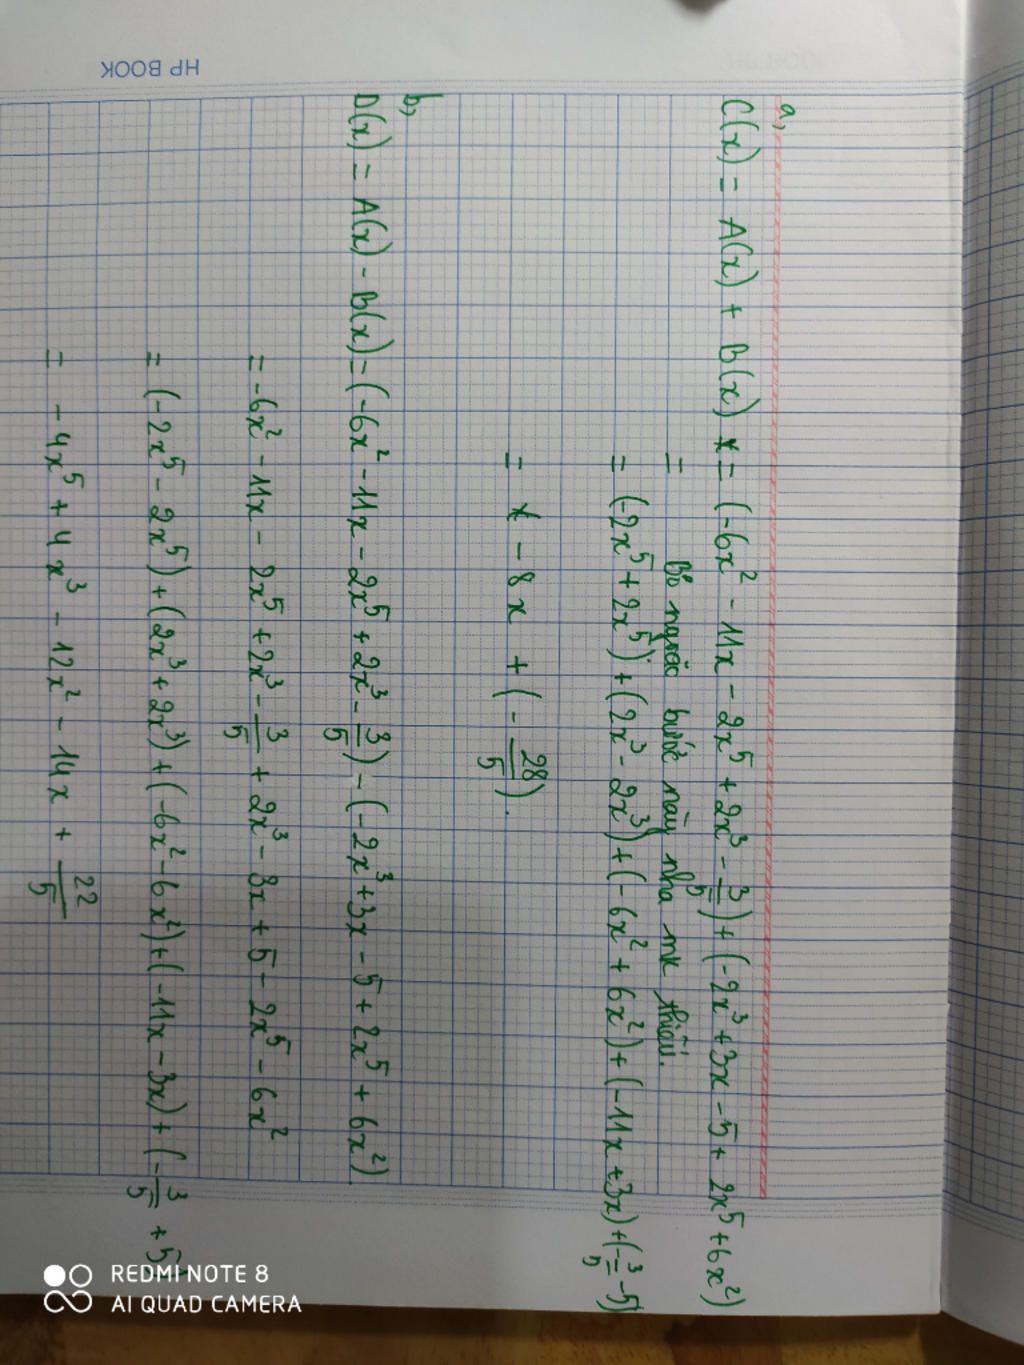 HP BOOK
a,
C(x) = A(x) + B(x) = (-6x² - 11x - 2x⁵ + 2x³ - 3/5) + (-2x³ + 3x - 5 + 2x⁵ + 6x²)
= Bỏ ngoặc bước này nha mk thiếu.
= (-2x⁵ + 2x⁵) + (2x³ - 2x³) + (-6x² + 6x²) + (-11x + 3x) + (-3/5 - 5)
= - 8x + (-28/5).
b,
D(x) = A(x) - B(x) = (-6x² - 11x - 2x⁵ + 2x³ - 3/5) - (-2x³ + 3x - 5 + 2x⁵ + 6x²)
= -6x² - 11x - 2x⁵ + 2x³ - 3/5 + 2x³ - 3x + 5 - 2x⁵ - 6x²
= (-2x⁵ - 2x⁵) + (2x³ + 2x³) + (-6x² - 6x²) + (-11x - 3x) + (-3/5 + 5)
= -4x⁵ + 4x³ - 12x² - 14x + 22/5
REDMI NOTE 8
AI QUAD CAMERA